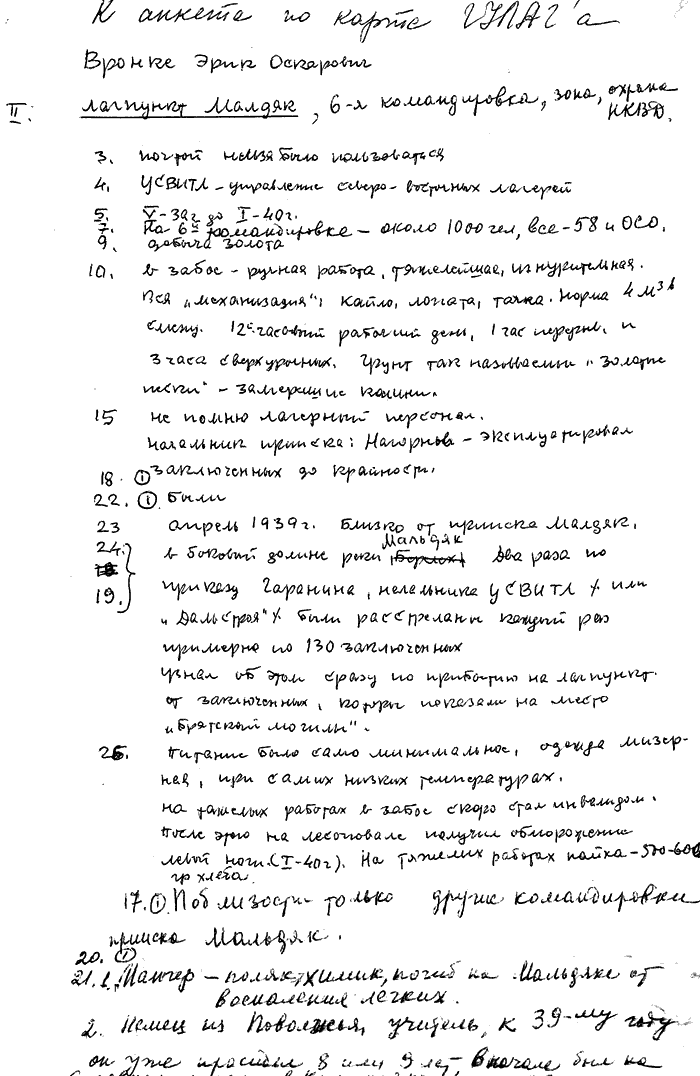 К анкете по карте ГУЛАГ'а
Вронке Эрик Оскарович
II. лагпункт Малдяк, 6-я командировка, зона, охрана НКВД.
3. почтой нельзя было пользоваться
4. УСВИТЛ – управление северо-восточных лагерей
5. V-39г до I-40г.
7. На 6й командировке – около 1000 чел, все-58 и ОСО.
9. добыча золота
10. в забое – ручная работа, тяжелейшая, изнурительная.
Вся „механизация": кайло, лопата, тачка. Норма 4 м3 в
смену. 12-часовый рабочий день, 1 час перерыв и
3 часа сверхурочных. Грунт так называемый „золотые
пески" – замерзшие камни.
15 не помню лагерный персонал.
Начальник прииска: Нагорнов – эксплуатировал
заключенных до крайности.
18. ①
22. ① были
23 апрель 1939г. Близко от прииска Малдяк,
24. в боковой долине реки Мальдяк Два раза по
19. приказу Гаранина, начальника УСВИТЛ х или
„Дальстроя" х были расстреляны каждый раз
примерно по 130 заключенных
Узнал об этом сразу по прибытию на лагпункт
от заключенных, которы показали на место
„братской могилы".
26. Питание было само минимальное, одежда мизер-
ная, при самих низких температурах.
На тяжелых работах в забое скоро стал инвалидом.
После этого на лесоповале получил обморожение
левой ноги (I-40г). На тяжелих работах пайка – 500-600
гр хлеба.
17. ① Поблизости только другие командировки
прииска Мальдяк.
20. ①
21. 1. – поляк, химик, погиб на Мальдяке от
воспаления легких.
2. Немец из Поволжья, учитель, к 39-му году
он уже просидел 8 или 9 лет, вначале был на